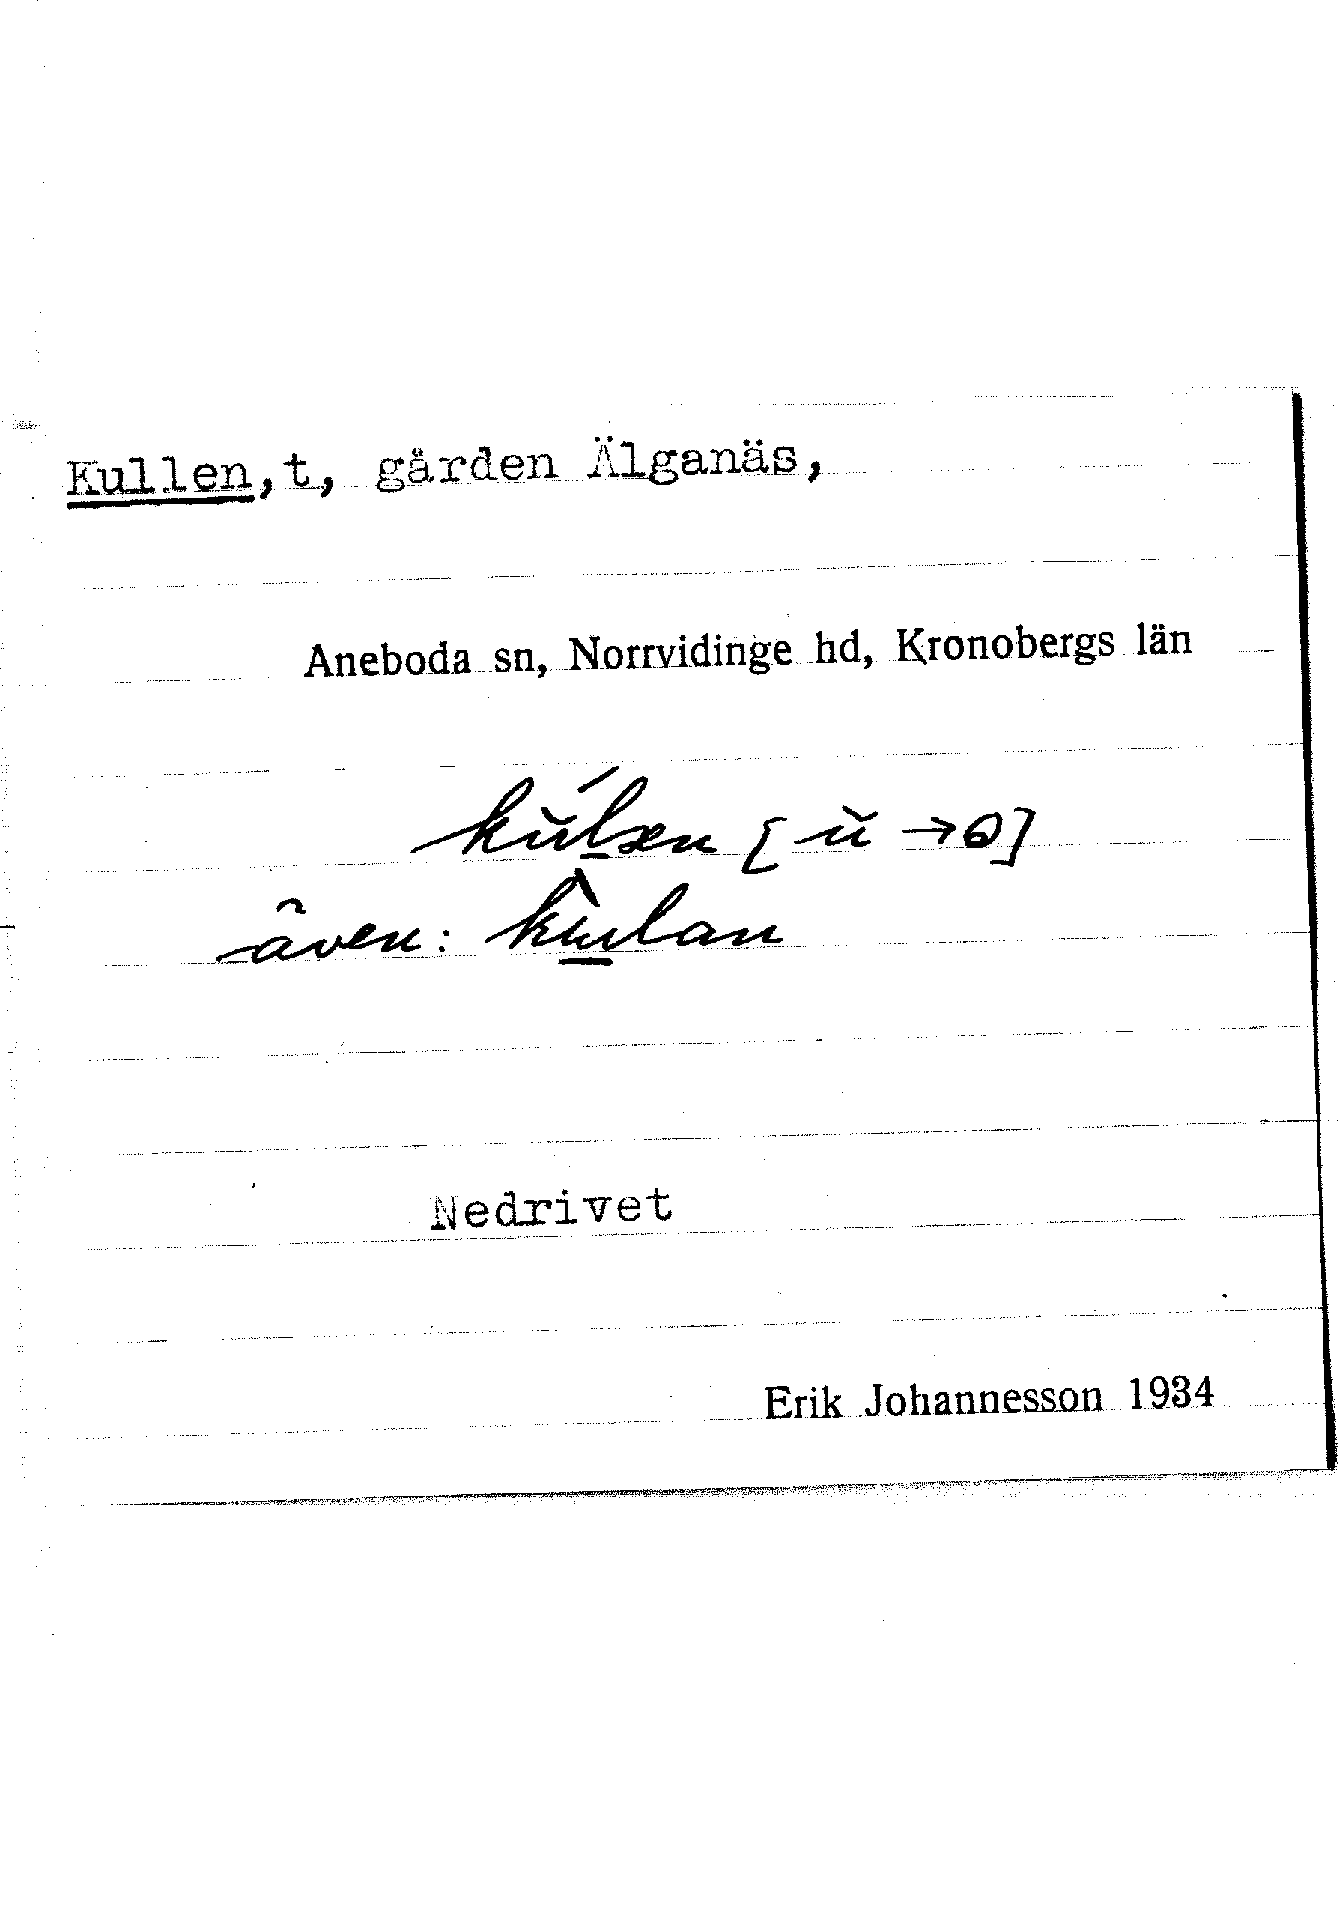 Kullen, t, gården Älganäs,
Aneboda sn, Norrvidinge hd, Kronobergs län
kùlæn [ù → ɷ]
även: kulan
Nedrivet
Erik Johannesson 1934